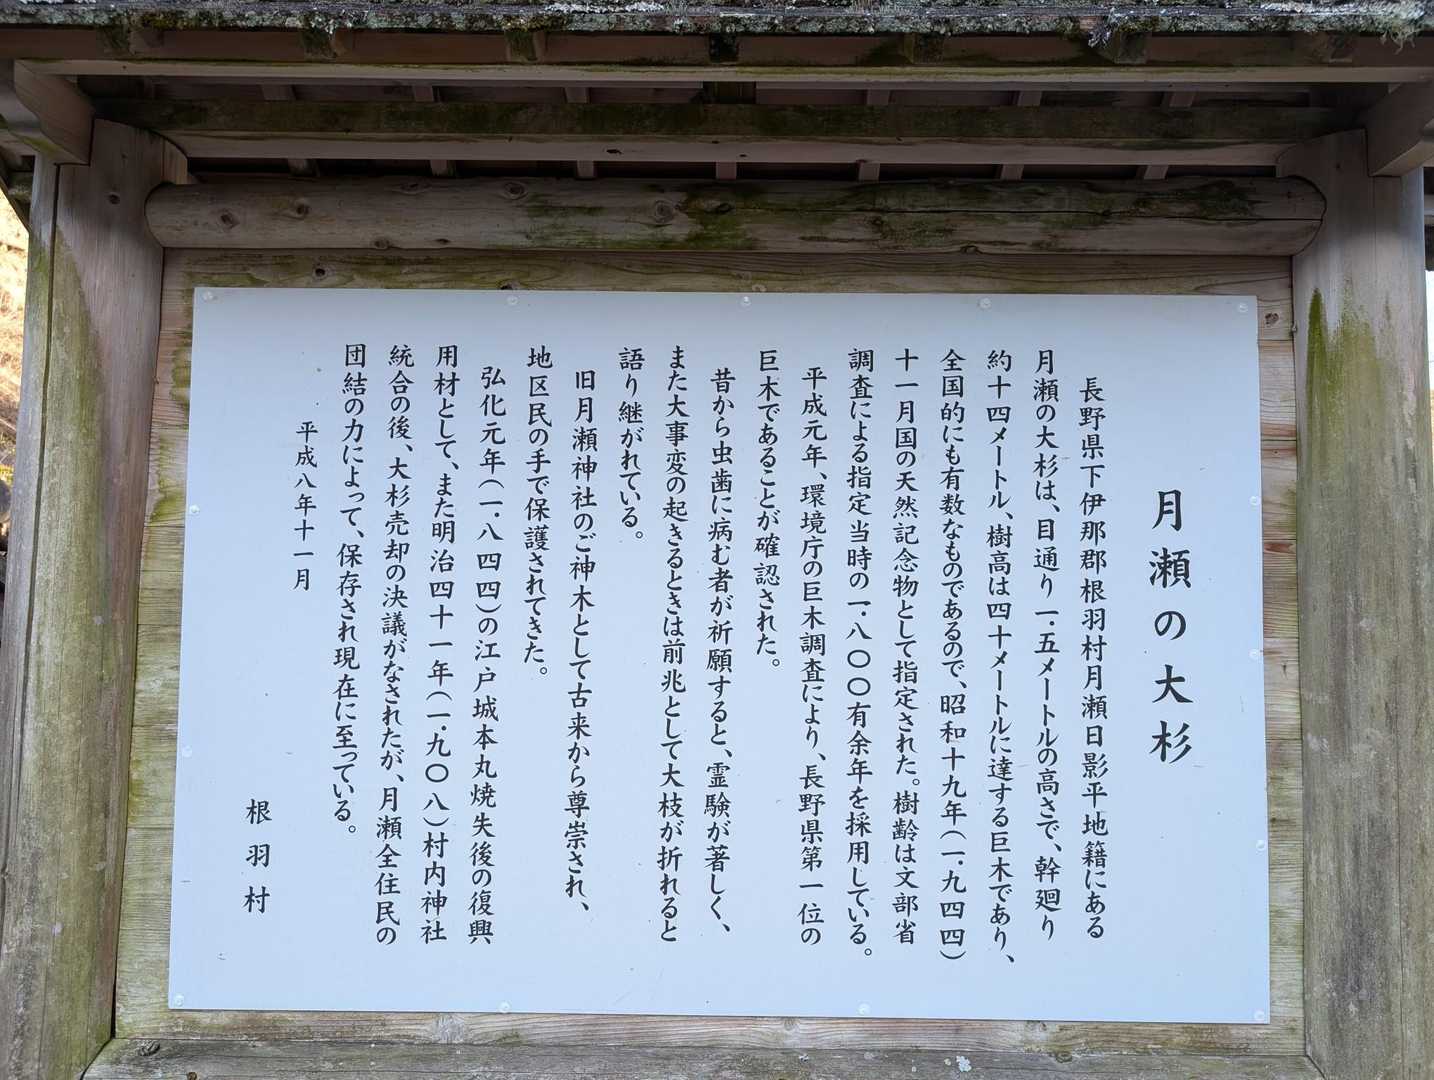 月瀬の大杉
長野県下伊那郡根羽村月瀬日影平地籍にある
月瀬の大杉は、目通り一・五メートルの高さで、幹廻り
約十四メートル、樹高は四十メートルに達する巨木であり、
全国的にも有数なものであるので、昭和十九年(一・九四四)
十一月国の天然記念物として指定された。樹齢は文部省
調査による指定当時の一・八〇〇有余年を採用している。
平成元年、環境庁の巨木調査により、長野県第一位の
巨木であることが確認された。
昔から虫歯に病む者が祈願すると、霊験が著しく、
また大事変の起きるときは前兆として大枝が折れると
語り継がれている。
旧月瀬神社のご神木として古来から尊崇され、
地区民の手で保護されてきた。
弘化元年(一・八四四)の江戸城本丸焼失後の復興
用材として、また明治四十一年(一・九〇八)村内神社
統合の後、大杉売却の決議がなされたが、月瀬全住民の
団結の力によって、保存され現在に至っている。
平成八年十一月
根羽村